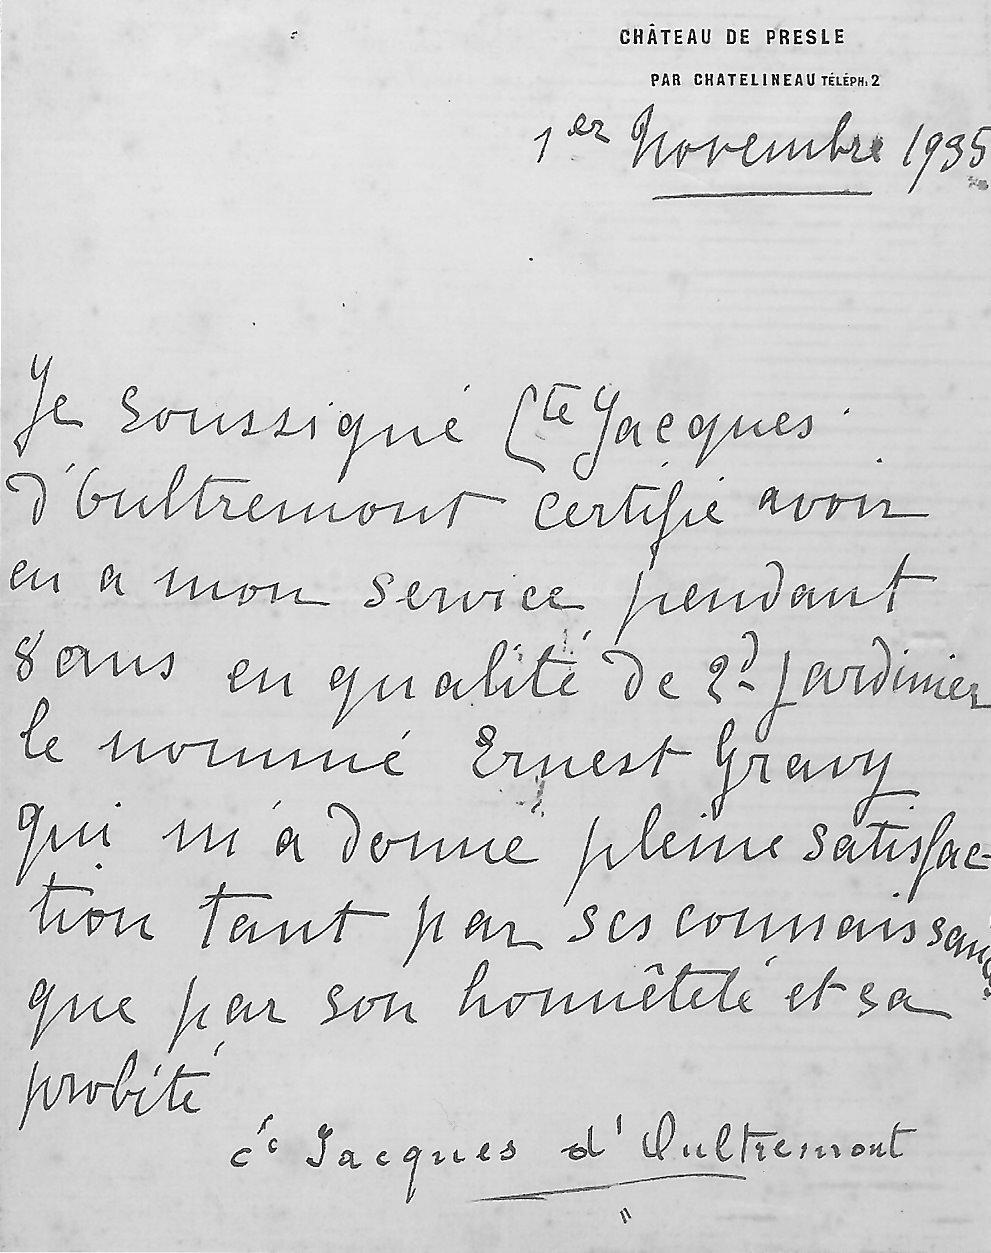 CHÂTEAU DE PRESLE
PAR CHATELINEAU TÉLÉPH: 2
1er Novembre 1935
Je soussigné Cte Jacques
d'Oultremont certifie avoir
eu a mon service pendant
8 ans en qualité de 2d jardinier
le nommé Ernest Gravy
qui m'a donné pleine satisfac-
tion tant par ses connaissances
que par son honnêteté et sa
probité
cte Jacques d'Oultremont